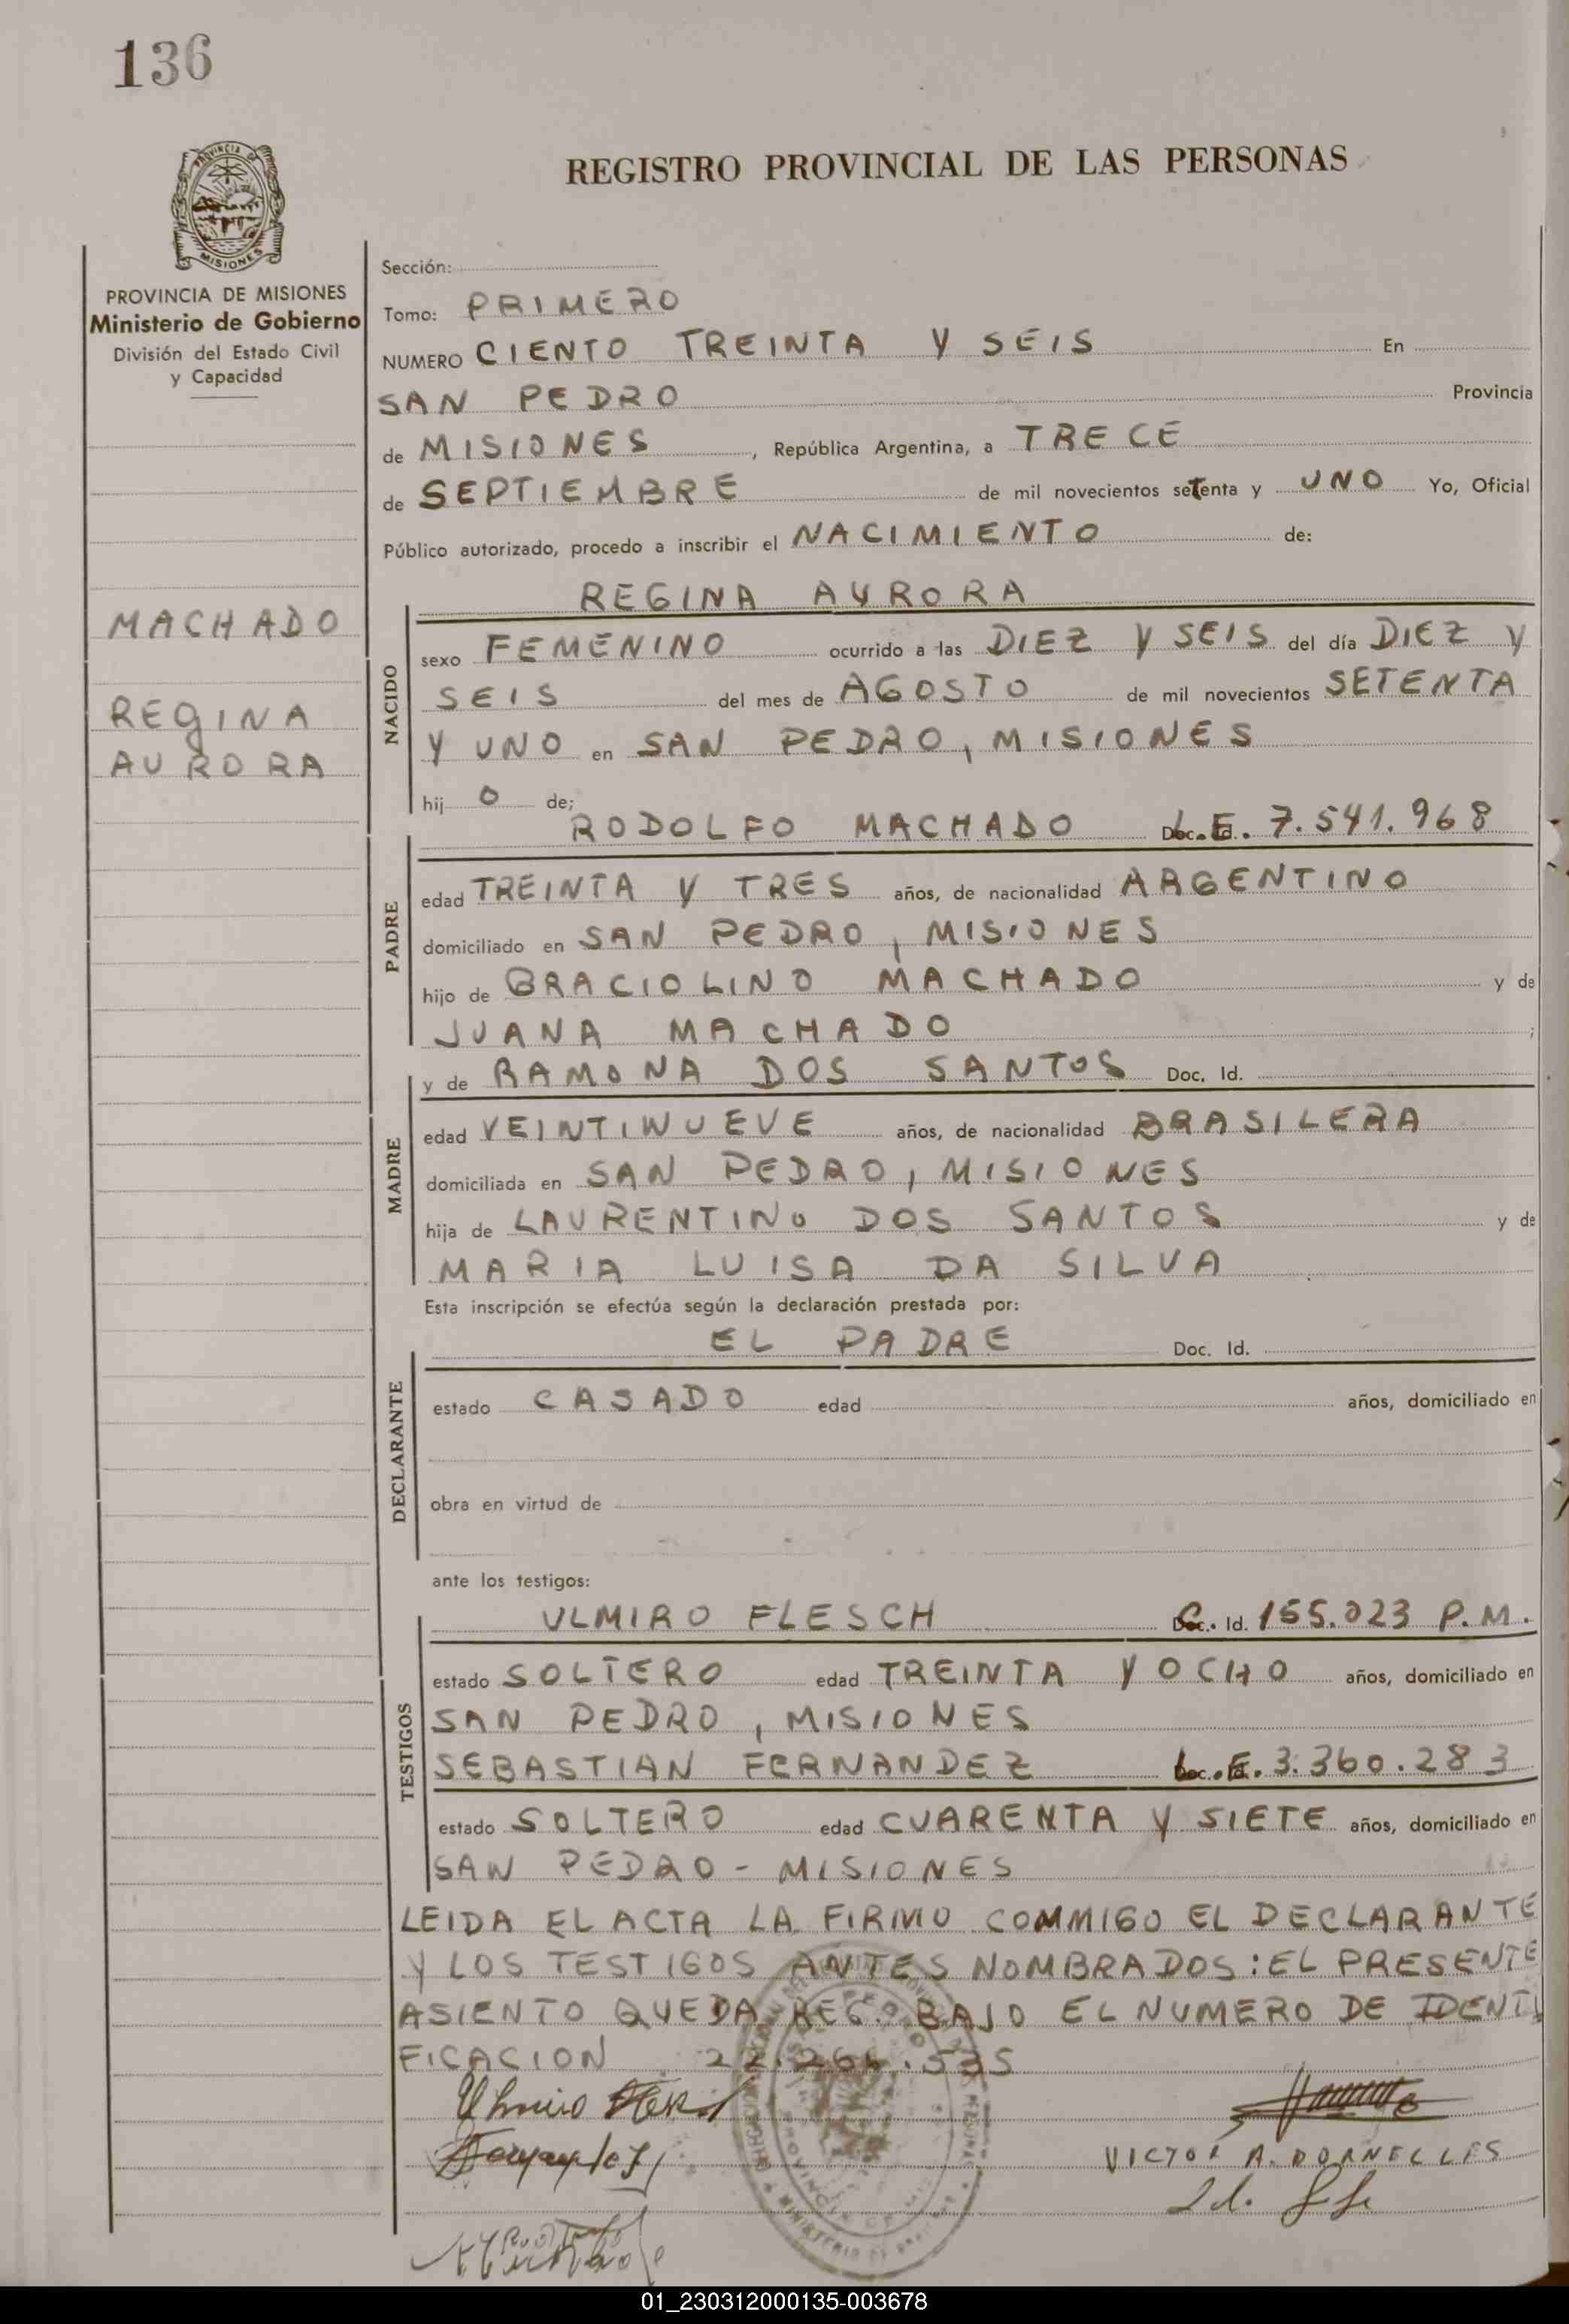 136
REGISTRO PROVINCIAL DE LAS PERSONAS
PROVINCIA DE
MISIONES
PROVINCIA DE MISIONES
Ministerio de Gobierno
División del Estado Civil
y Capacidad
MACHADO
REGINA
AURORA
Sección:
Tomo: PRIMERO
NUMERO CIENTO TREINTA Y SEIS En
SAN PEDRO Provincia
de MISIONES, República Argentina, a TRECE
de SEPTIEMBRE de mil novecientos setenta y UNO Yo, Oficial
Público autorizado, procedo a inscribir el NACIMIENTO de:
NACIDO
REGINA AURORA
sexo FEMENINO ocurrido a las DIEZ Y SEIS del día DIEZ Y
SEIS del mes de AGOSTO de mil novecientos SETENTA
Y UNO en SAN PEDRO, MISIONES
hij O de;
PADRE
RODOLFO MACHADO L.E. 7.541.968
edad TREINTA Y TRES años, de nacionalidad ARGENTINO
domiciliado en SAN PEDRO, MISIONES
hijo de GRACIOLINO MACHADO y de
JUANA MACHADO ;
MADRE
y de RAMONA DOS SANTOS Doc. Id.
edad VEINTINUEVE años, de nacionalidad BRASILERA
domiciliada en SAN PEDRO, MISIONES
hija de LAURENTINO DOS SANTOS y de
MARIA LUISA DA SILVA
Esta inscripción se efectúa según la declaración prestada por:
DECLARANTE
EL PADRE Doc. Id.
estado CASADO edad años, domiciliado en
obra en virtud de
ante los testigos:
TESTIGOS
ULMIRO FLESCH C. Id. 155.023 P.M.
estado SOLTERO edad TREINTA Y OCHO años, domiciliado en
SAN PEDRO, MISIONES
SEBASTIAN FERNANDEZ L.E. 3.360.283
estado SOLTERO edad CUARENTA Y SIETE años, domiciliado en
SAN PEDRO - MISIONES
LEIDA EL ACTA LA FIRMO COMMIGO EL DECLARANTE
Y LOS TESTIGOS ANTES NOMBRADOS: EL PRESENTE
ASIENTO QUEDA REG. BAJO EL NUMERO DE IDENTI
FICACION
VICTOR A. DORNELLES
01_230312000135-003678